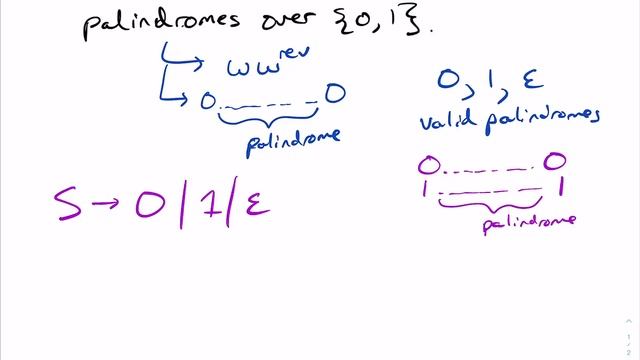 palindromes over {0,1}.
ww^rev
0 _ _ _ _ _ 0
palindrome
0, 1, ε
valid palindromes
0 _ _ _ _ _ 0
1 _ _ _ _ _ 1
palindrome
S → 0 | 1 | ε
1/2